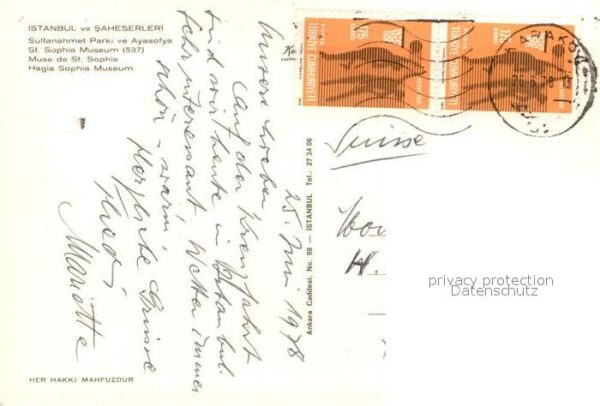 İSTANBUL ve ŞAHESERLERİ
Sultanahmet Parkı ve Ayasofya
St. Sophia Museum (537)
Muse de St. Sophie
Hagia Sophia Museum
TÜRKİYE CUMHURİYETİ
TÜRKİYE CUMHURİYETİ
KARAKÖY
Suisse
25. Juni 1978
Unsere Lieben
Auf der Kreuzfahrt
sind wir heute in Istanbul.
Sehr interessant. Wetter immer
schön - warm
Herzliche Grüsse
Mariette
H.
Ankara Caddesi, No. 98 — İSTANBUL Tel.: 27 34 06
privacy protection
Datenschutz
HER HAKKI MAHFUZDUR